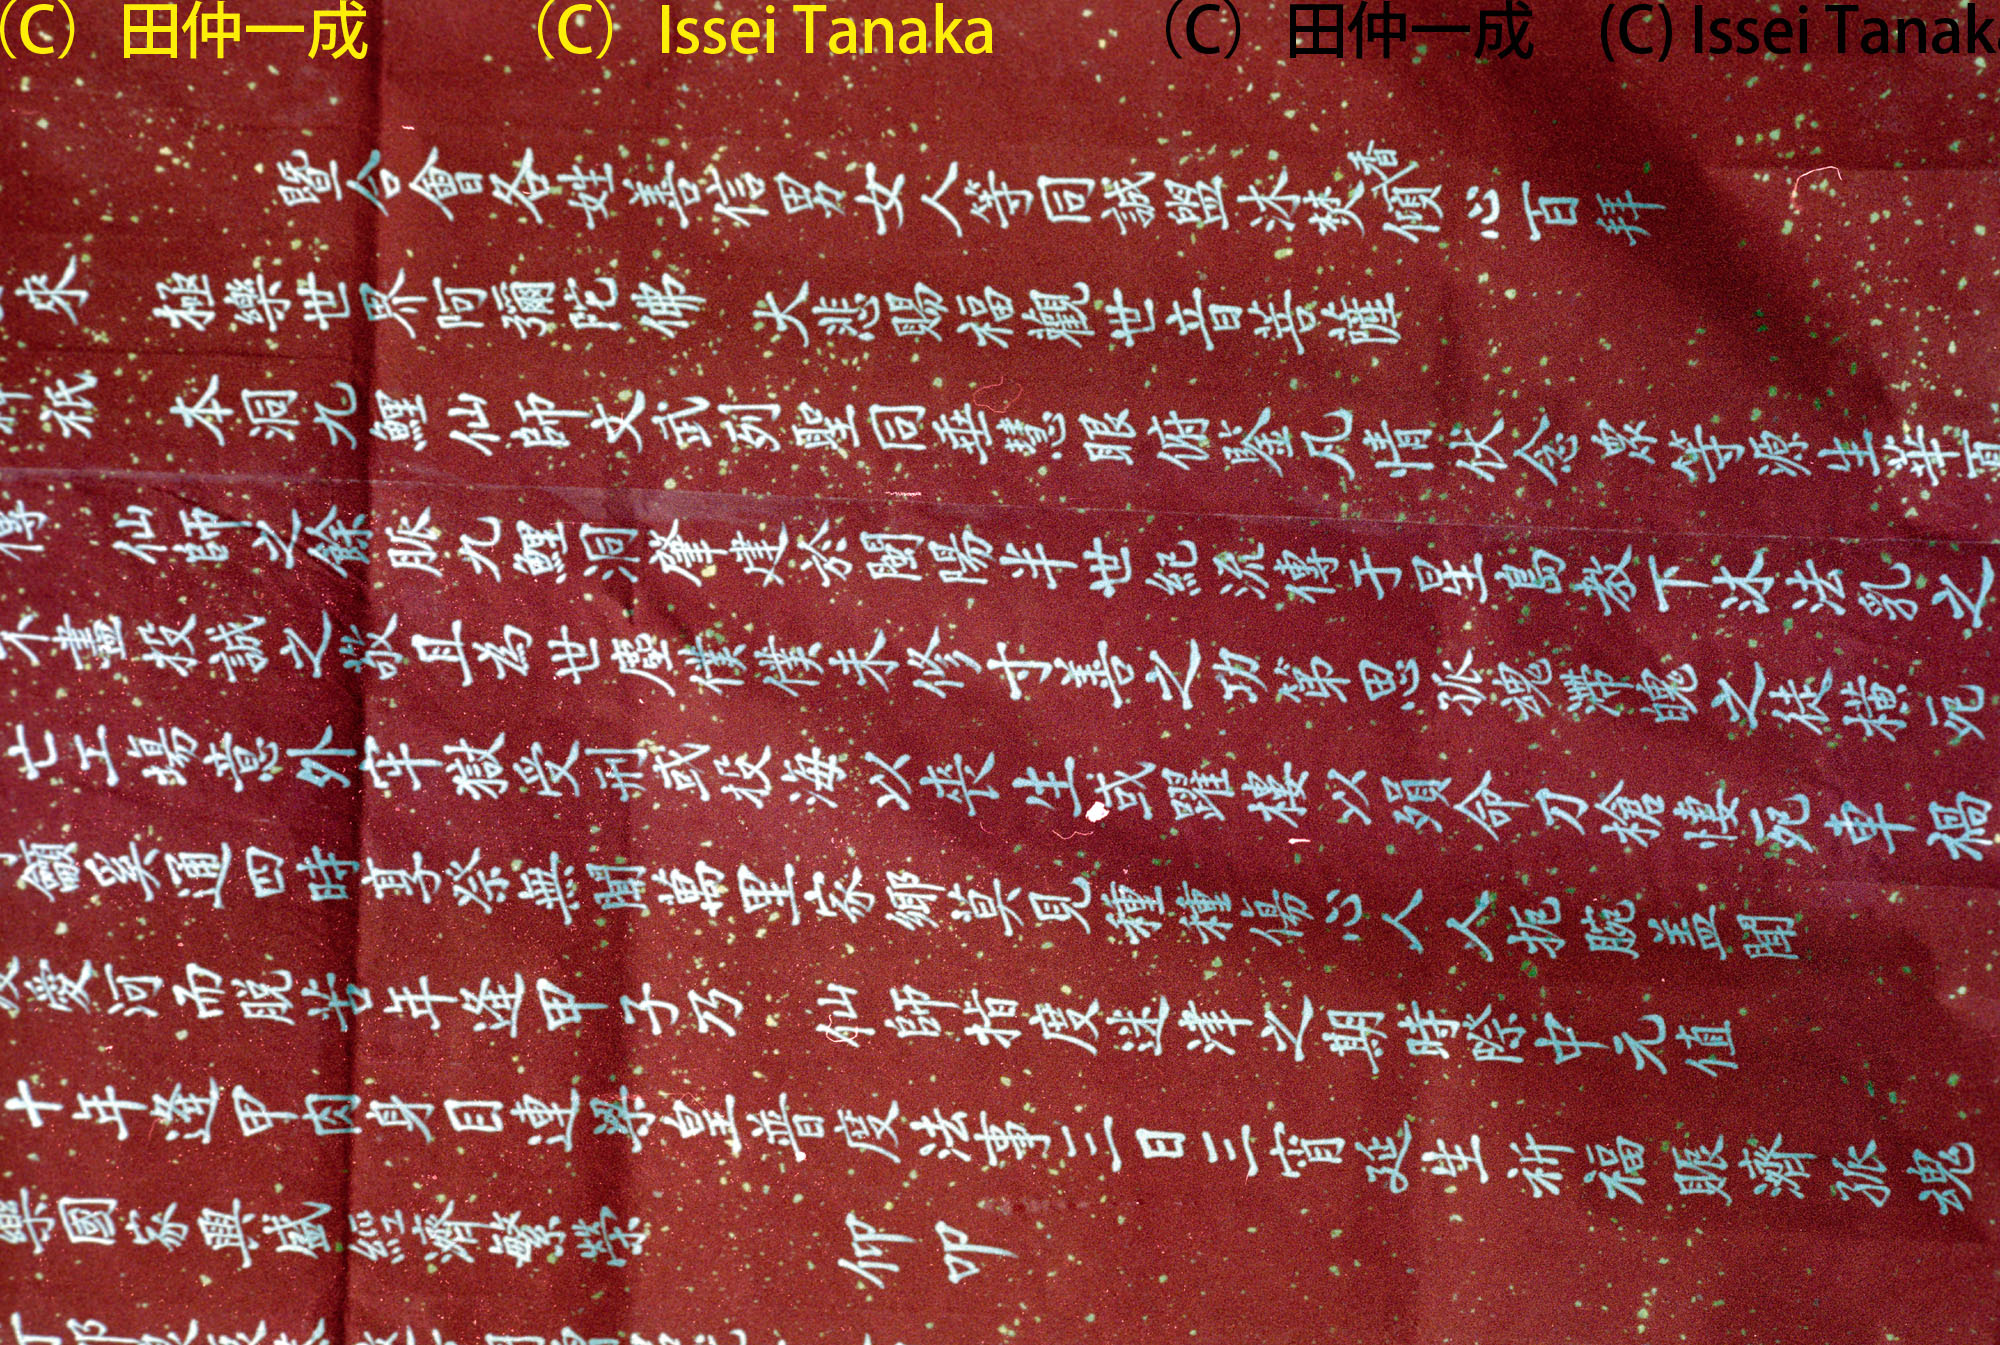 (C) 田仲一成 (C) Issei Tanaka (C) 田仲一成 (C) Issei Tanaka
暨合會各姓善信男女人等同誠盥沐焚香傾心百拜
來 極樂世界阿彌陀佛 大悲賜福觀世音菩薩
祇 本洞九鯉仙師文武列聖同垂慧眼府鑒凡情伏念眾等源生莘
仙師之餘脈九鯉洞肇基于閩陽半世紀流傳于星島教下沐法乳之
不盡投誠之敬且為世塵僕僕未修寸善之功第思孤魂滯魄之徒橫死
亡工場意外牢獄受刑或投海以喪生或躍樓以殞命刀槍悽死車禍
籲奚通四時享祭無聞萬里家鄉莫見種種傷心人人扼腕蓋聞
愛河而脫苦年逢甲子乃 仙師指度迷津之期時際中元值
十年逢甲肉身目連梁皇普度法事三日三宵延生祈福賑濟孤魂
樂國家興盛經濟繁榮 仰叩